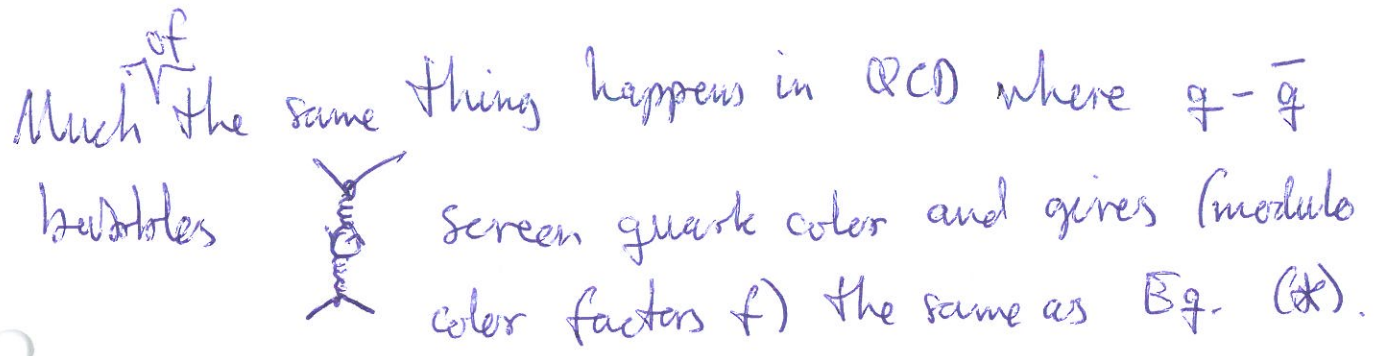 Much of the same thing happens in QCD where q - q̄
bubbles screen quark color and gives (modulo
color factors f) the same as Eq. (*).